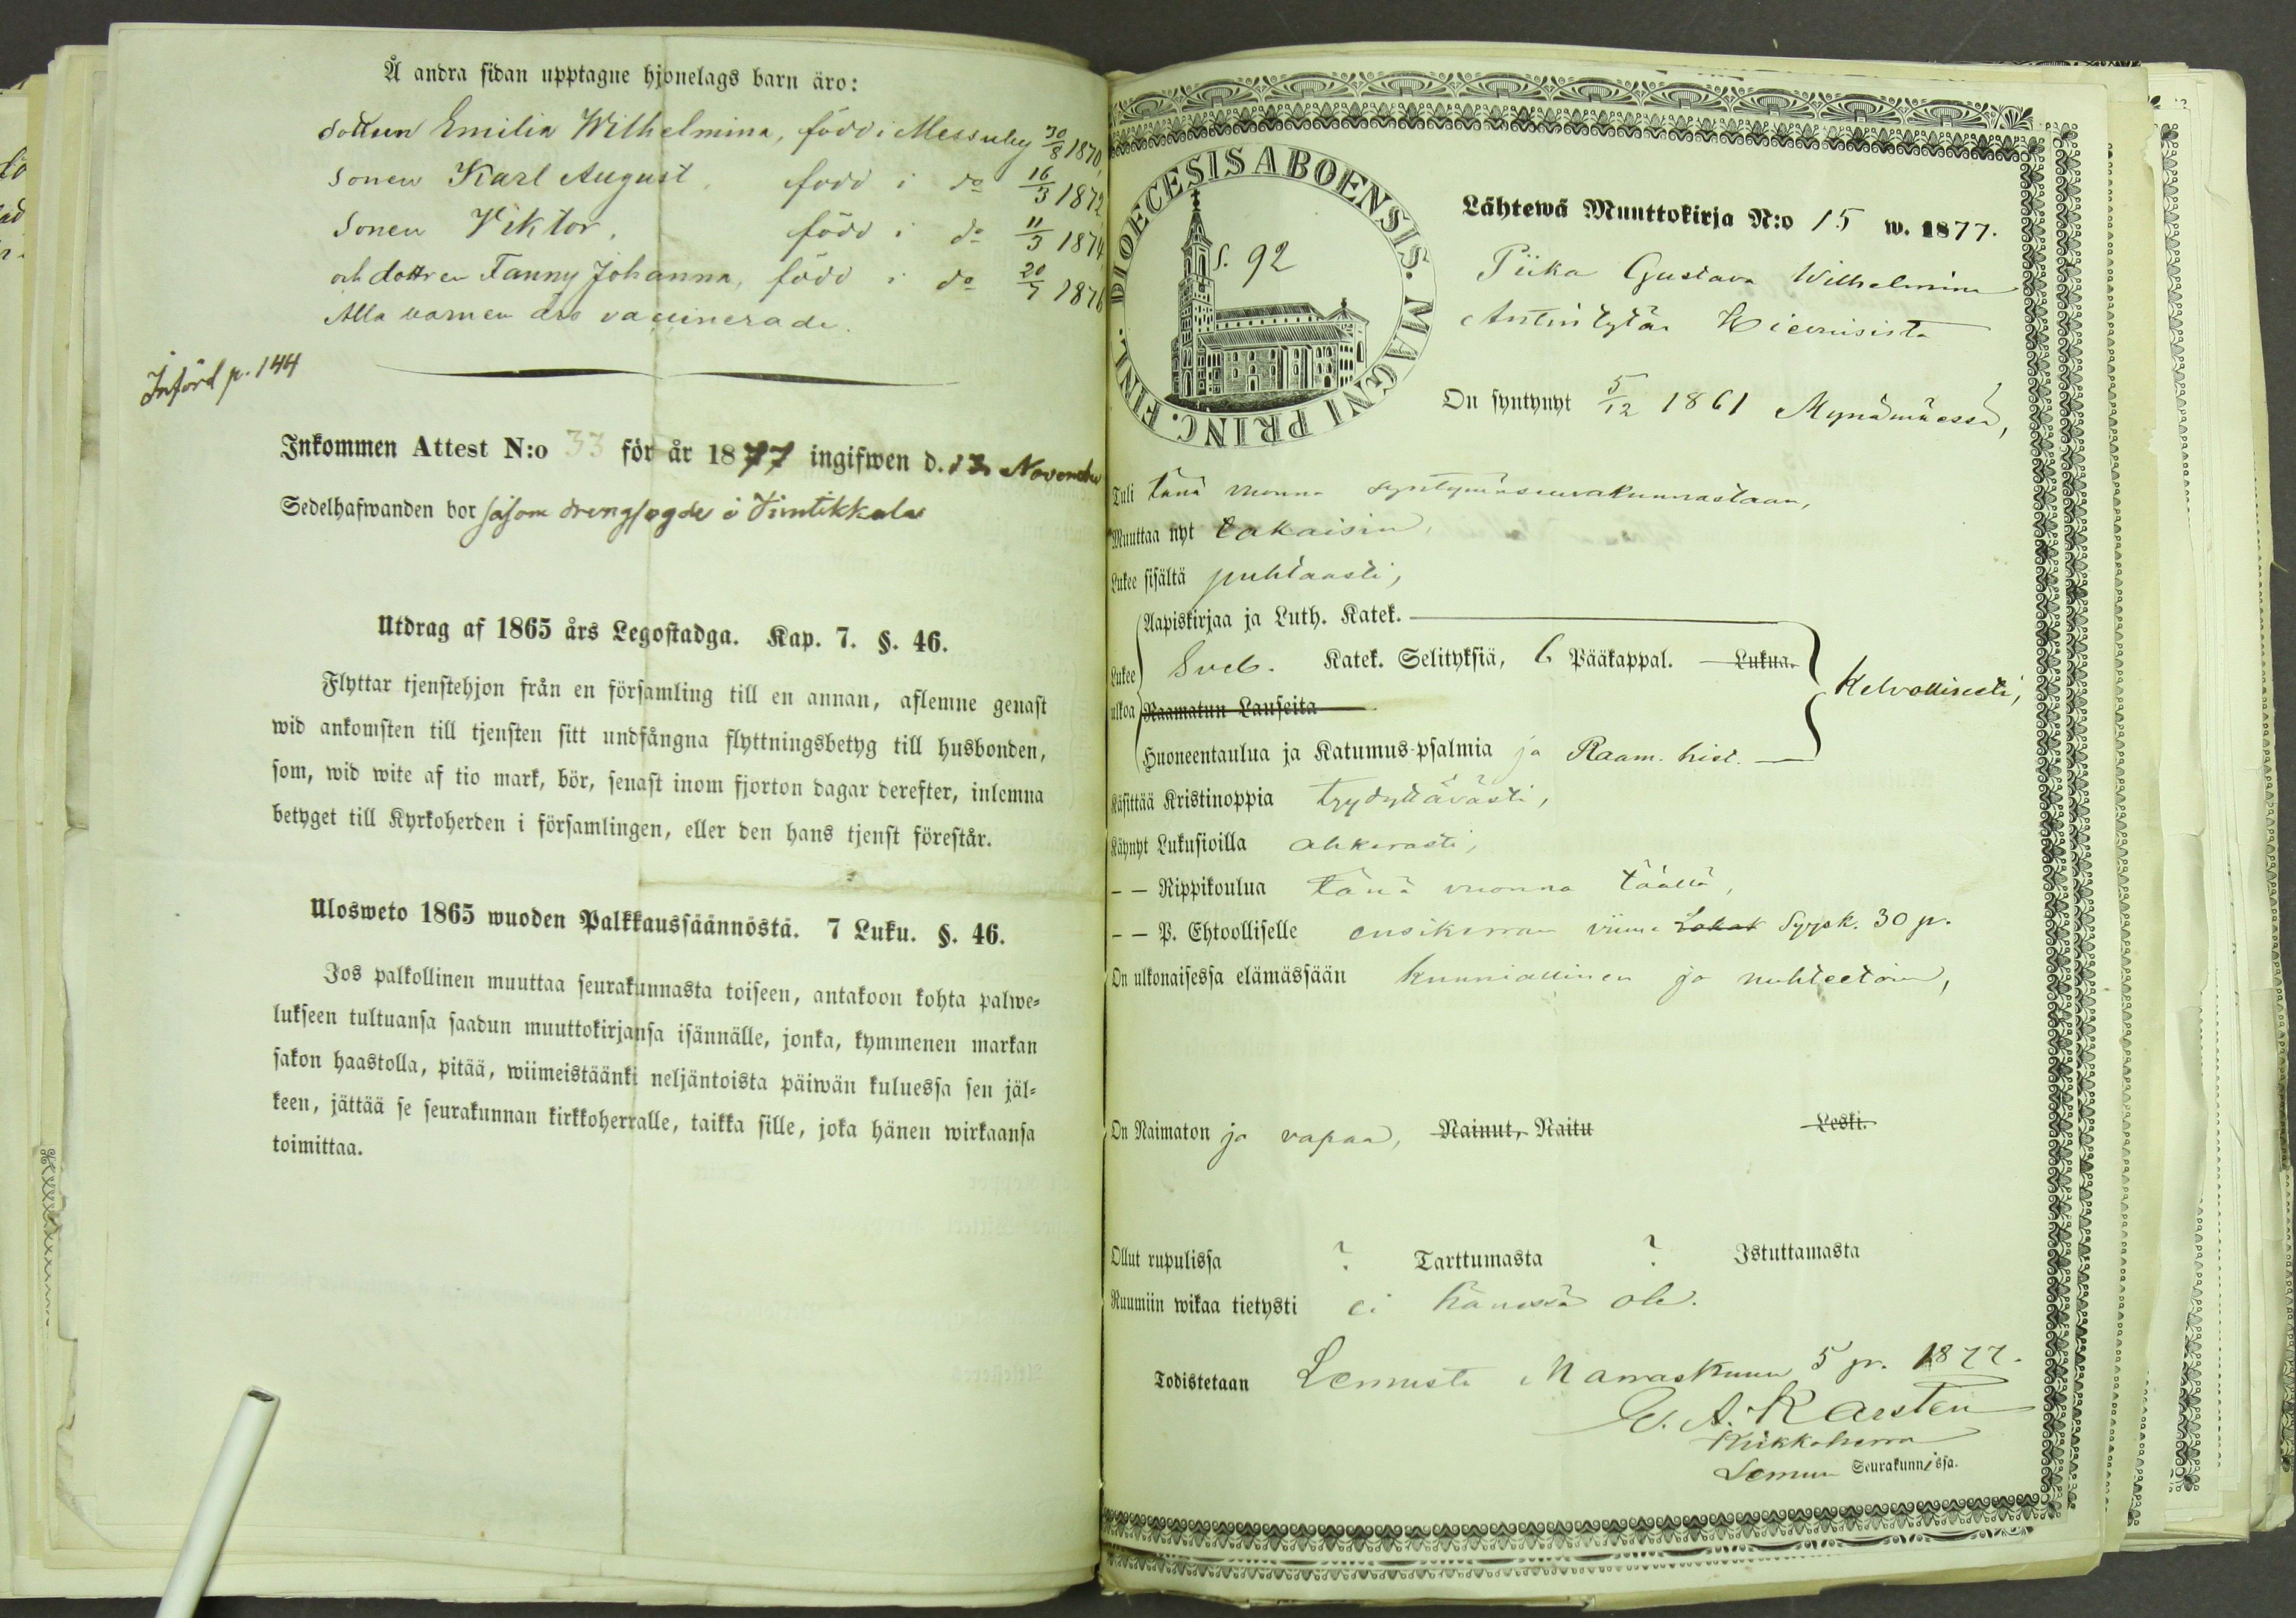 Å andra sidan upptagne hjonelags barn äro:
dottren Emilia Wilhelmina, född i Messuby 30/8 1870,
sonen Karl August, född i do 16/3 1872,
sonen Viktor, född i do 11/3 1874,
och dottren Fanny Johanna, född i do 20/7 1876
Alla barnen äro vaccinerade.
Införd p. 144
Inkommen Attest N:o 33 för år 1877 ingifwen d. 13 November
Sedelhafwanden bor såsom drengfogde i
Utdrag af 1865 års Legostadga. Kap. 7. §. 46.
Flyttar tjenstehjon från en församling till en annan, aflemne genast
wid ankomsten till tjensten sitt undfångna flyttningsbetyg till husbonden,
som, wid wite af tio mark, bör, senast inom fjorton dagar derefter, inlemna
betyget till Kyrkoherden i församlingen, eller den hans tjenst förestår.
Ulosweto 1865 wuoden Palkkaussäännöstä. 7 Luku. §. 46.
Jos palkollinen muuttaa seurakunnasta toiseen, antakoon kohta palwe-
lukseen tultuansa saadun muuttokirjansa isännälle, jonka, kymmenen markan
sakon haastolla, pitää, wiimeistäänki neljäntoista päiwän kuluessa sen jäl-
keen, jättää se seurakunnan kirkkoherralle, taikka sille, joka hänen wirkaansa
toimittaa.
DIOECESIS ABOENSIS. MAGNI PRINC. FINL.
S. 92
Lähtewä Muuttokirja N:o 15 w. 1877.
Piika Gustava Wilhelmina
Antintytär
On syntynyt 5/12 1861 Mynämäessä,
Tuli tänä vuonna syntymäseurakunnastaan,
Muuttaa nyt takaisin,
Lukee sisältä puhtaasti,
Aapiskirjaa ja Luth. Katek.
Lukee ulkoa Sveb. Katek. Selityksiä, 6 Pääkappal. Lukua. Kelvollisesti,
Raamatun Lauseita
Huoneentaulua ja Katumus-psalmia ja Raam. hist.
Käsittää Kristinoppia tyydyttävästi,
Käynyt Lukusioilla ahkerasti,
— — Rippikoulua tänä vuonna täällä,
— — P. Ehtoolliselle ensikerran viime Lokak Syysk. 30 p.
On ulkonaisessa elämässään kunniallinen ja nuhteetoin,
On Naimaton ja vapaa, Nainut, Naitu Leski.
Ollut rupulissa ? Tarttumasta ? Istuttamasta
Ruumiin wikaa tietysti ei hänessä ole.
Todistetaan Lemusta Marraskuun 5 p. 1877.
G. A. Karsten
Kirkkoherra
Lemun Seurakunnissa.